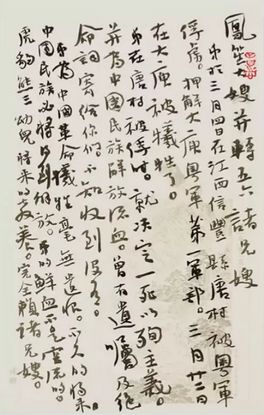 鳳笙大嫂并轉五六諸兄嫂
弟於三月四日在江西信豐縣唐村被粵軍
俘虜。押解大庾粵軍第一軍部。三月廿二日
在大庾被犧牲了。
弟在唐村被俘時。就決定一死以殉主義。
并為中國民族解放流血。曾有遺囑及絕
命詞寄給你們不知收到沒有。
弟為中國革命犧牲毫無遺恨。不久的將來
中國民族必將得到解放。弟的鮮血不是空流的。
虎豹熊三幼兒將來的教養。完全賴諸兄嫂。